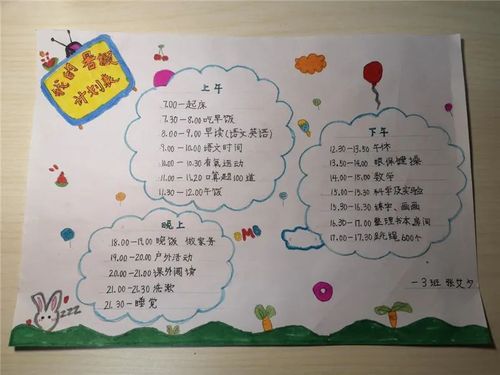 我的暑假
计划表
上午
7.00-起床
7.30-8.00吃早饭
8.00-9.00早读(语文英语)
9.00-10.00语文时间
10.00-10.30有氧运动
11.00-11.20口算题100道
11.30-12.00午饭
下午
12.30-13.50午休
13.50-14.00眼保健操
14.00-15.00数学
15.00-15.30科学及实验
15.30-16.30练字、画画
16.30-17.00整理书本、房间
17.00-17.30跳绳600个
晚上
18.00-19.00晚饭 做家务
19.00-20.00户外活动
20.00-21.00课外阅读
21.00-21.30洗漱
21.30-睡觉
zzz
一3班 张艾夕